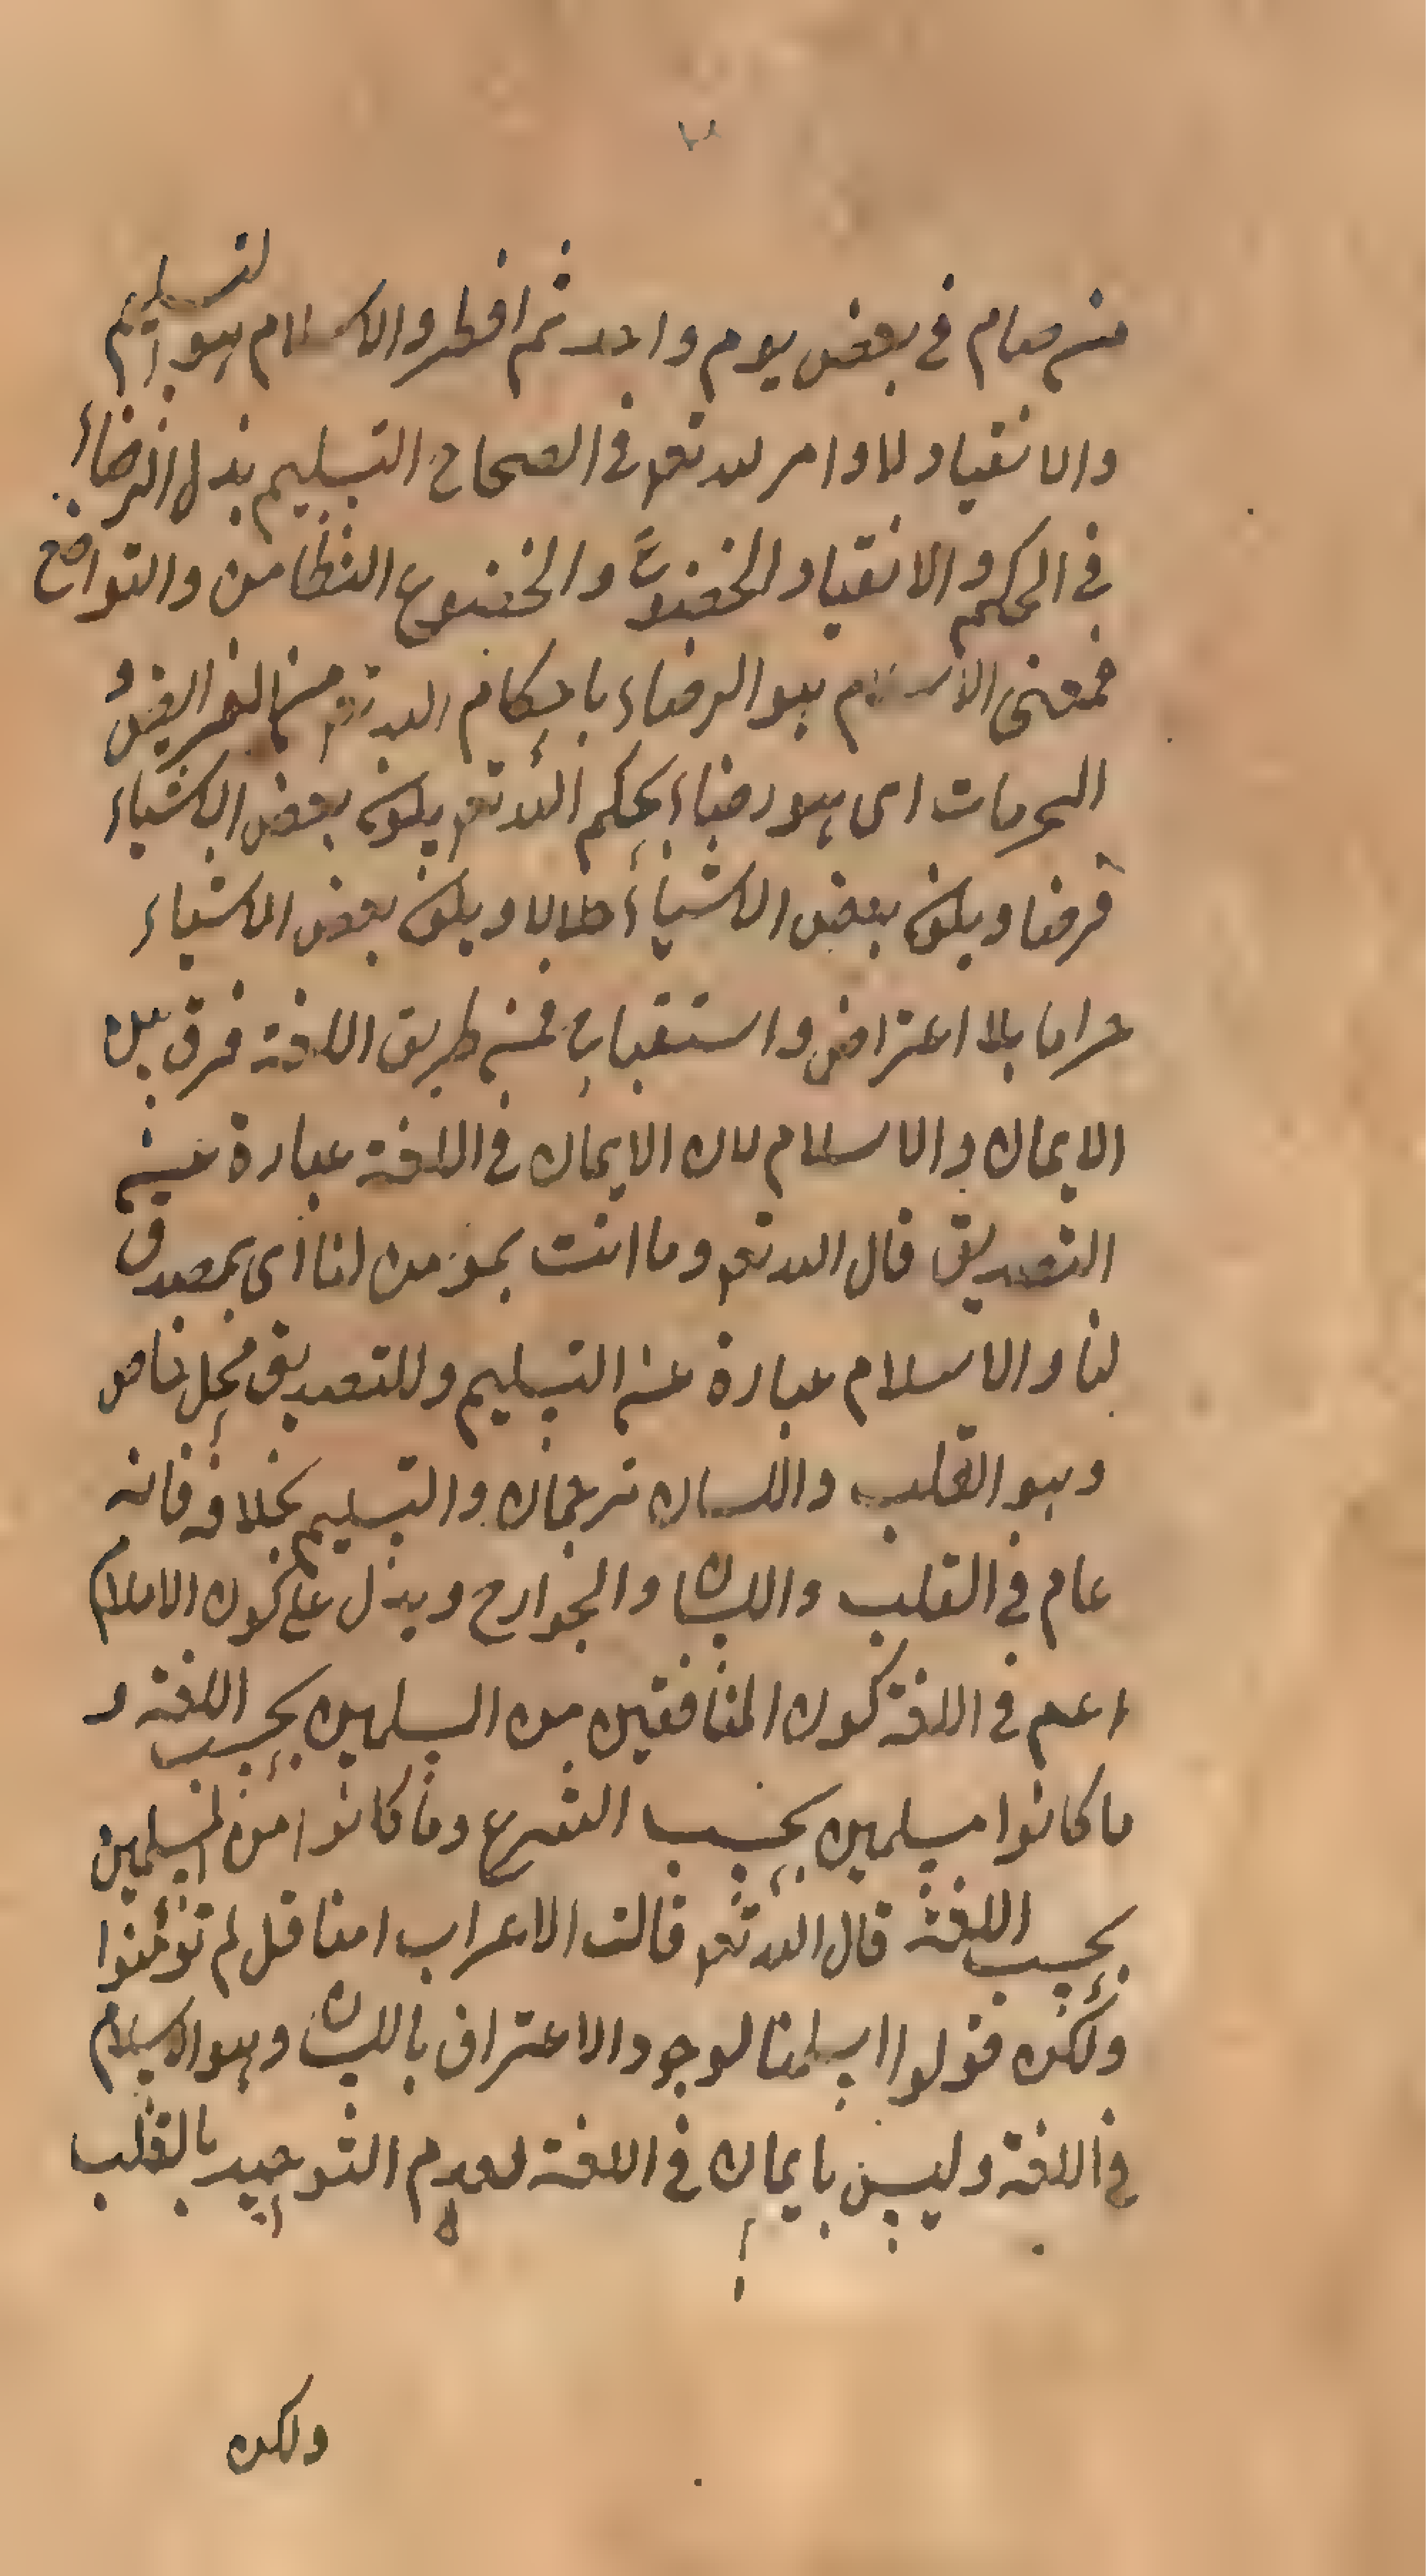 من صام في بعض يوم واحد ثم افطر والاسلام هو التسليم
والانقياد لاوامر الله تعم في الصحاح التسليم بذل الرضاء
في الحكم والانقياد الخضوع والخضوع التطامن والتواضع
فمعنى الاسلام هو الرضاء باحكام الله تعم من الفرائض و
المحرمات اى هو رضاء بحكم الله تعم بكون بعض الاشياء
فرضا وبكون بعض الاشياء حلالا وبكون بعض الاشياء
حراما بلا اعتراض واستقباح فمن طريق اللغة فرق بين
الايمان والاسلام لان الايمان في اللغة عبارة عن
التصديق قال الله تعم وما انت بمؤمن لنا اى بمصدق
لنا والاسلام عبارة عن التسليم وللتصديق محل خاص
وهو القلب واللسان ترجمان والتسليم بخلافه فانه
عام في القلب واللسان والجوارح ويدل على كون الاسلام
اعم في اللغة كون المنافقين من المسلمين بحسب اللغة و
ما كانوا مسلمين بحسب الشرع وما كانوا من المسلمين
بحسب اللغة قال الله تعم قالت الاعراب امنا قل لم تؤمنوا
ولكن قولوا اسلمنا لوجود الاعتراف باللسان وهو الاسلام
في اللغة وليس بايمان في اللغة لعدم التوحيد بالقلب
ولكن